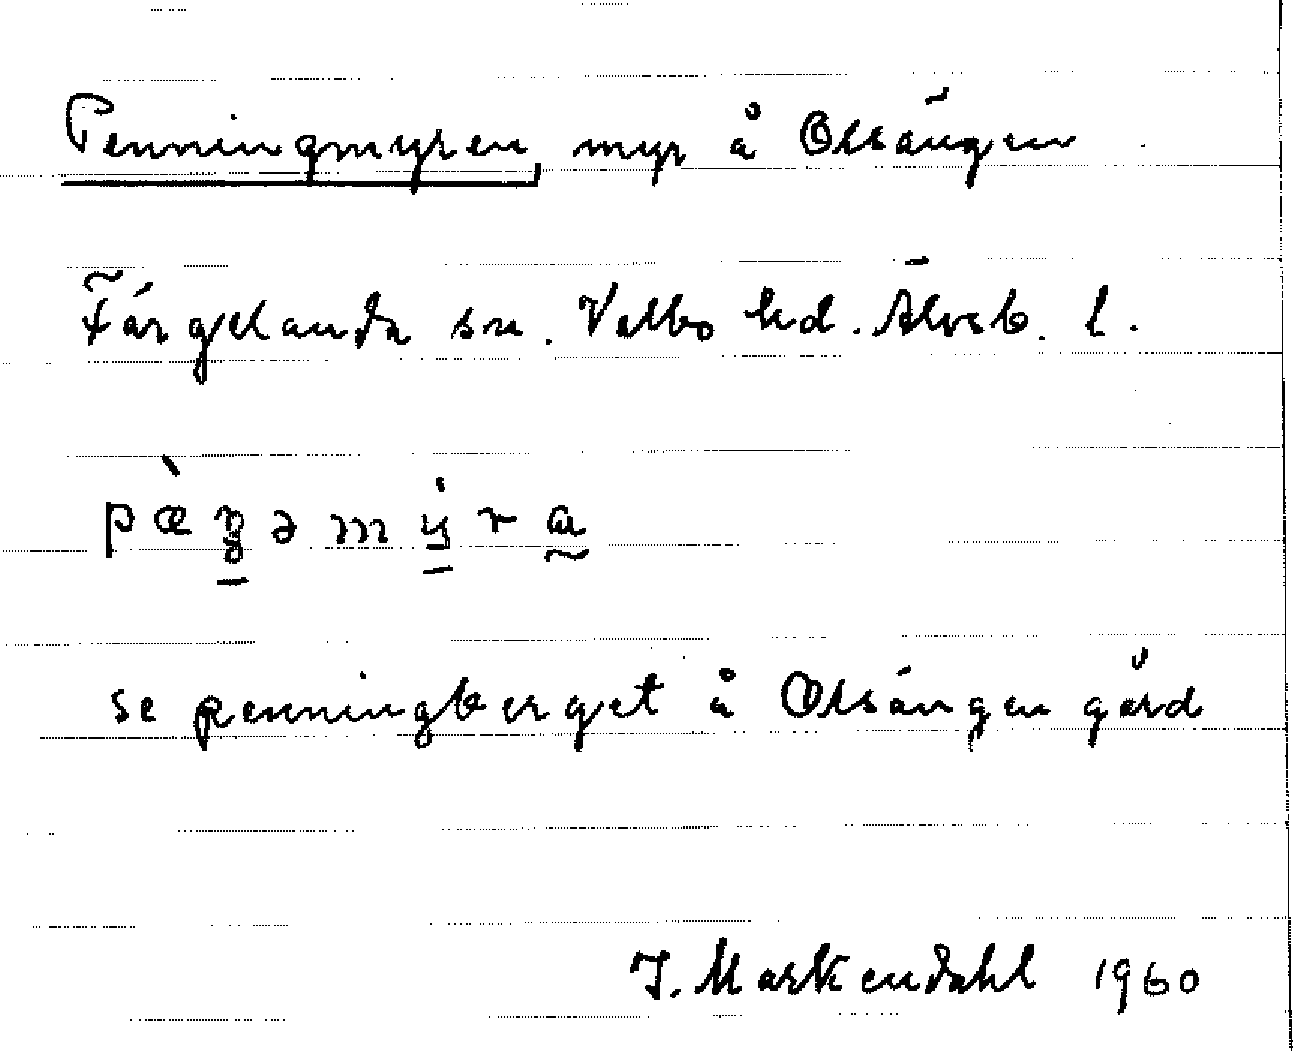 Penningmyren, myr å Olsängen
Färgelanda sn. Valbo hd. Älvsb. l.
se penningberget å Olsängen gård
J. Markendahl 1960